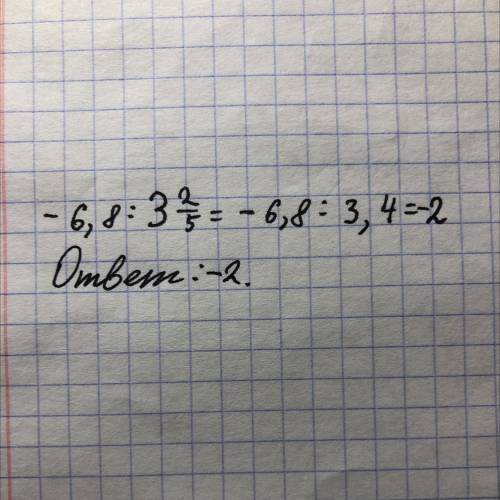 - 6,8 : 3 2/5 = - 6,8 : 3,4 = -2
Ответ: -2.